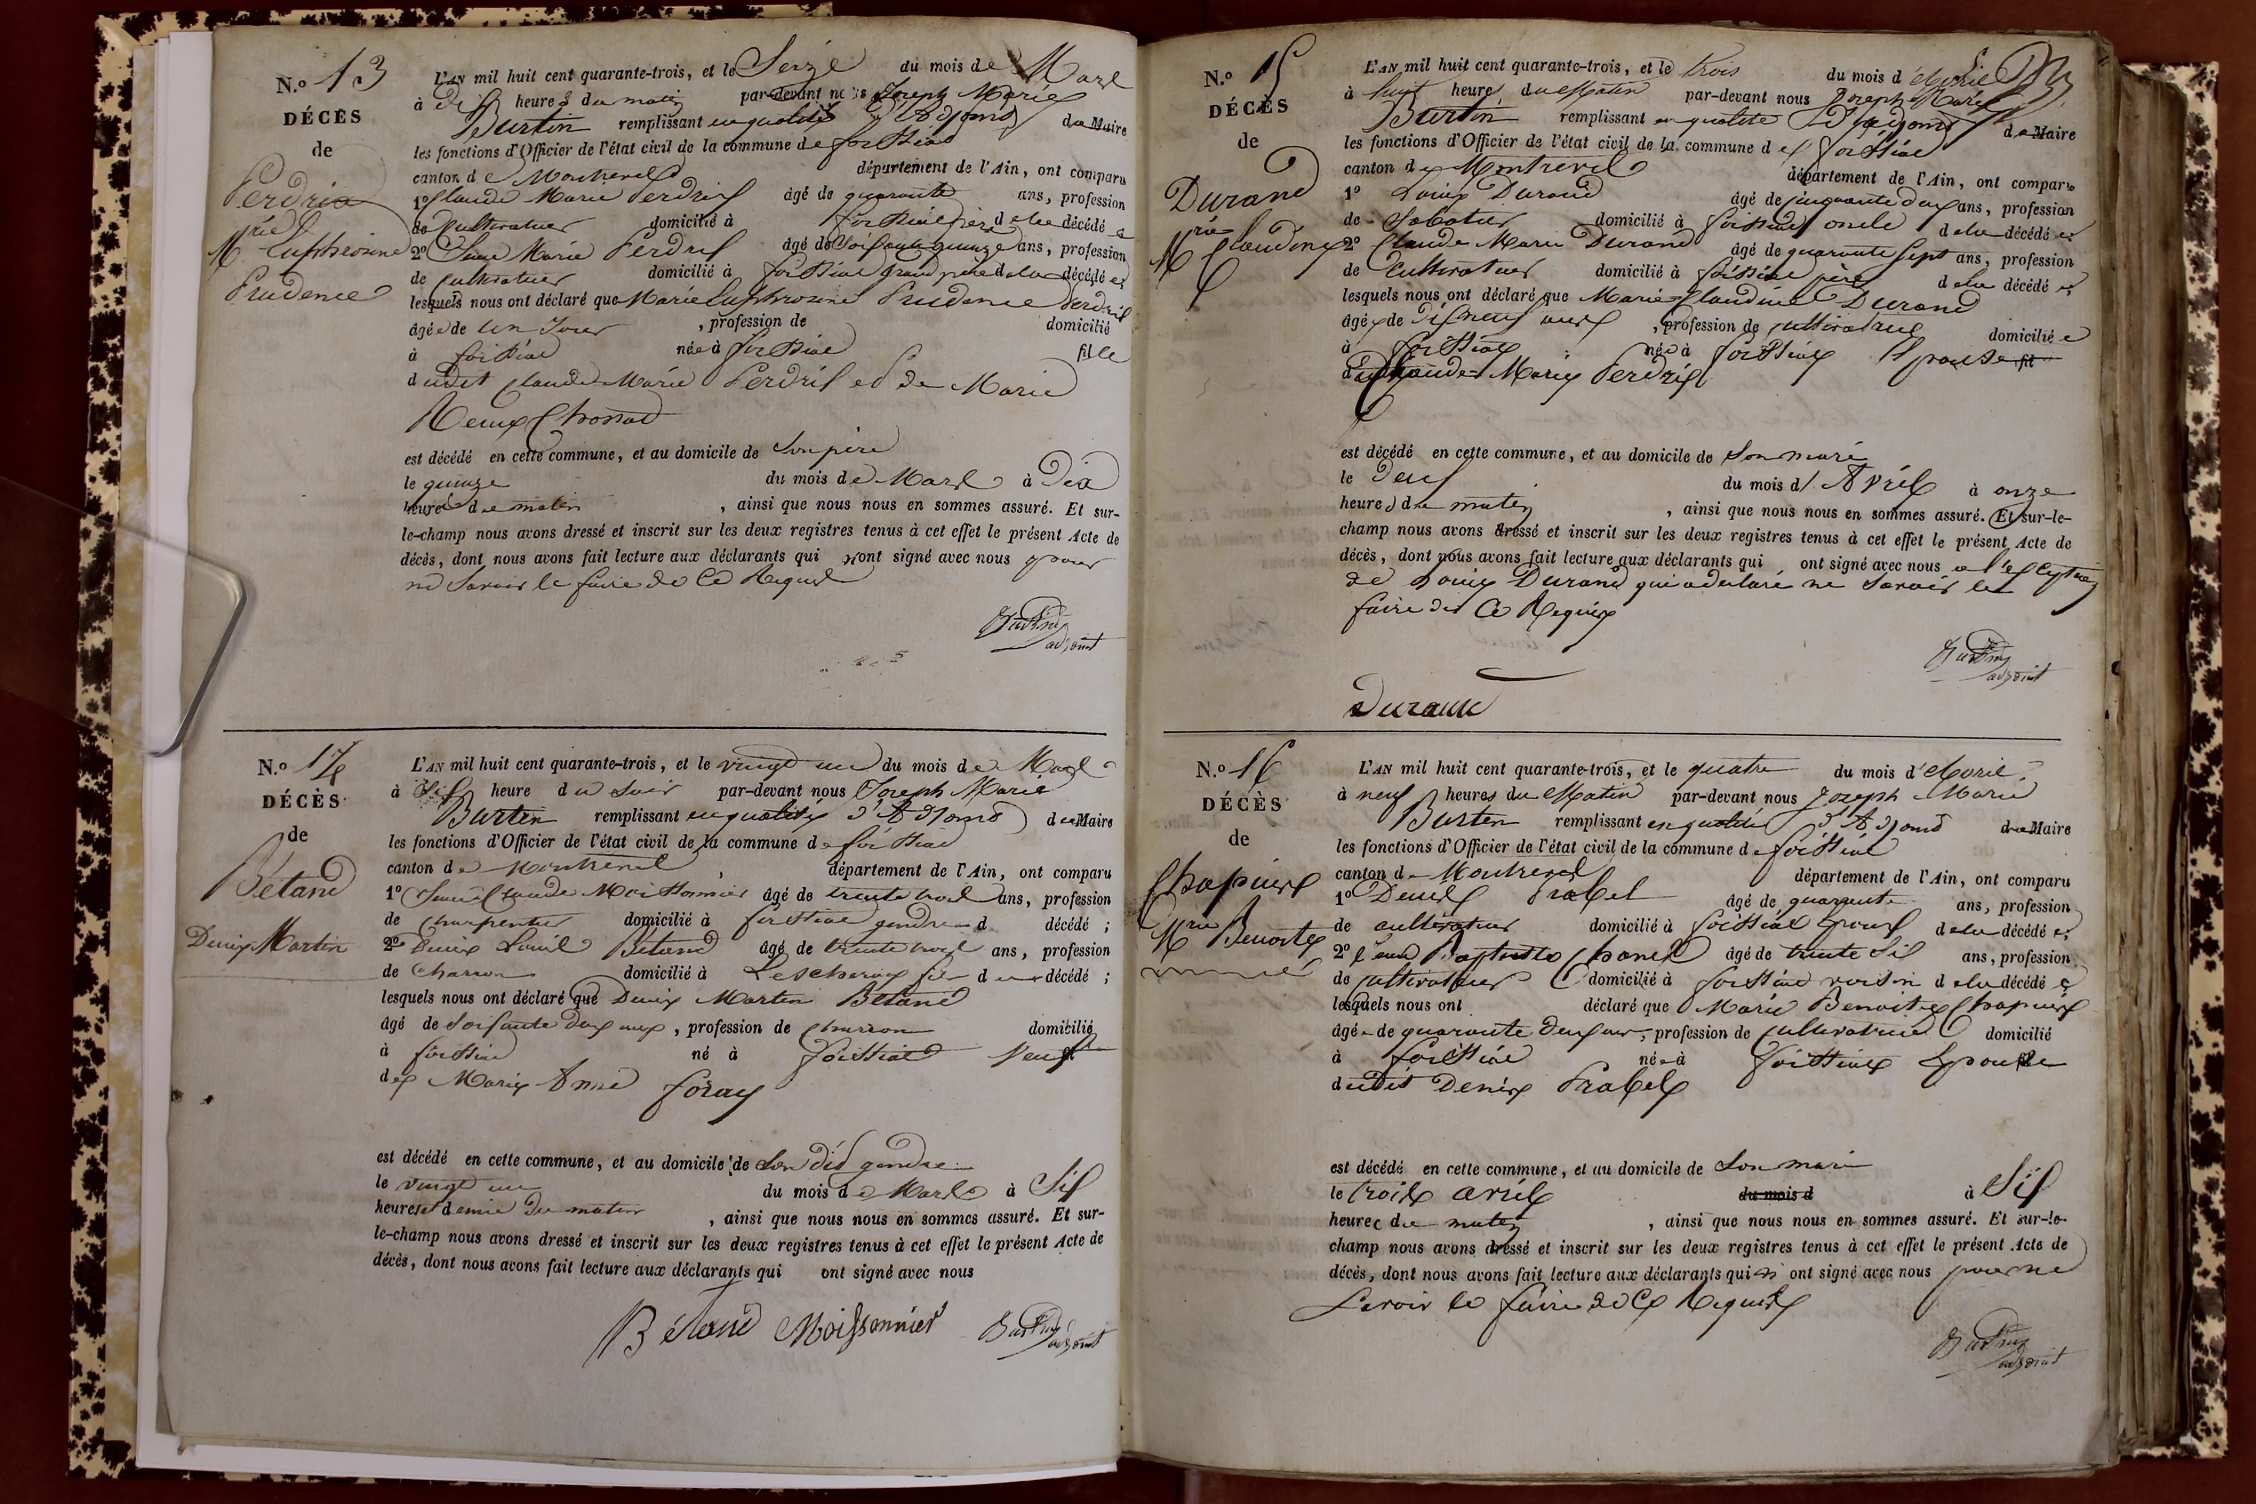 N.o 13
DÉCÈS
de
Perdrix
Mrie Euphrosine
Prudence
L'AN mil huit cent quarante-trois, et le Seize du mois de Mars
à dix heures du matin par-devant nous Joseph Marie
Burtin remplissant en qualité d'Adjoint du Maire
les fonctions d'Officier de l'état civil de la commune de foissiat
canton de Montrevel département de l'Ain, ont comparu
1o Claude Marie Perdrix âgé de quarante ans, profession
de Cultivateur domicilié à foissiat père de la décédé e
2o Perdrix âgé de Soixante quinze ans, profession
de cultivateur domicilié à foissiat grand père de la décédé e
lesquels nous ont déclaré que Marie Euphrosine Prudence Perdrix
âgé e de un Jour , profession de domicilié
à foissiat née à foissiat fille
dudit Claude Marie Perdrix et de Marie
Chossat
est décédé en cette commune, et au domicile de Son père
le quinze du mois de Mars à Dix
heures du matin , ainsi que nous nous en sommes assuré. Et sur-
le-champ nous avons dressé et inscrit sur les deux registres tenus à cet effet le présent Acte de
décès, dont nous avons fait lecture aux déclarants qui n'ont signé avec nous pour
ne Savoir le faire de Ce Requis
Burtin
adjoint
N.o 14
DÉCÈS
de
Bétand
Denis Martin
L'AN mil huit cent quarante-trois, et le vingt un du mois de Mars
à Six heure du Soir par-devant nous Joseph Marie
Burtin remplissant en qualité d'Adjoint du Maire
les fonctions d'Officier de l'état civil de la commune de foissiat
canton de Montrevel département de l'Ain, ont comparu
1o Claude Moissonnier âgé de trente trois ans, profession
de charpentier domicilié à foissiat gendre d décédé ;
2o Denis Louis Bétand âgé de trente trois ans, profession
de Charron domicilié à Lescheroux fils du décédé ;
lesquels nous ont déclaré que Denis Martin Bétand
âgé de Soixante deux ans , profession de charron domicilié
à foissiat né à foissiat veuf
de Marie Anne foray
est décédé en cette commune, et au domicile de Son dit gendre
le vingt un du mois de Mars à Six
heures et demie du matin , ainsi que nous nous en sommes assuré. Et sur-
le-champ nous avons dressé et inscrit sur les deux registres tenus à cet effet le présent Acte de
décès, dont nous avons fait lecture aux déclarants qui ont signé avec nous
Bétand Moissonnier Burtin
adjoint
N.o 15
DÉCÈS
de
Durand
Mrie Claudine
L'AN mil huit cent quarante-trois, et le trois du mois d'Avril
à huit heures du Matin par-devant nous Joseph Marie
Burtin remplissant en qualité d'adjoint du Maire
les fonctions d'Officier de l'état civil de la commune de foissiat
canton de Montrevel département de l'Ain, ont comparu
1o Louis Durand âgé de cinquante deux ans, profession
de Sabotier domicilié à foissiat oncle de la décédé e
2o Claude Marie Durand âgé de quarante Sept ans, profession
de Cultivateur domicilié à foissiat père de la décédé e
lesquels nous ont déclaré que Marie Claudine Durand
âgé e de dix neuf ans , profession de cultivatrice domicilié e
à foissiat née à foissiat Epouse fil
de Claude Marie Perdrix
est décédé en cette commune, et au domicile de Son mari
le deux du mois d'Avril à onze
heures du matin , ainsi que nous nous en sommes assuré. Et sur-le-
champ nous avons dressé et inscrit sur les deux registres tenus à cet effet le présent Acte de
décès, dont nous avons fait lecture aux déclarants qui ont signé avec nous a l'Exception
de Louis Durand qui a déclaré ne Savoir le
faire de Ce Requis
Burtin
adjoint
Durand
N.o 16
DÉCÈS
de
Chapuis
Mrie Benoite
L'AN mil huit cent quarante-trois, et le quatre du mois d'Avril
à neuf heures du Matin par-devant nous Joseph Marie
Burtin remplissant en qualité d'Adjoint du Maire
les fonctions d'Officier de l'état civil de la commune de foissiat
canton de Montrevel département de l'Ain, ont comparu
1o Denis Prabel âgé de quarante ans, profession
de cultivateur domicilié à foissiat Epoux de la décédé e
2o Jean Baptiste Chanel âgé de trente Six ans, profession
de cultivateur domicilié à foissiat voisin de la décédé e
lesquels nous ont déclaré que Marie Benoite Chapuis
âgé e de quarante deux ans, profession de Cultivatrice domicilié
à foissiat née à foissiat Epouse
dudit Denis Prabel
est décédé en cette commune, et au domicile de Son mari
le trois avril du mois d à Six
heures du matin , ainsi que nous nous en sommes assuré. Et sur-le-
champ nous avons dressé et inscrit sur les deux registres tenus à cet effet le présent Acte de
décès, dont nous avons fait lecture aux déclarants qui n'ont signé avec nous pour ne
Savoir le faire de Ce Requis
Burtin
adjoint